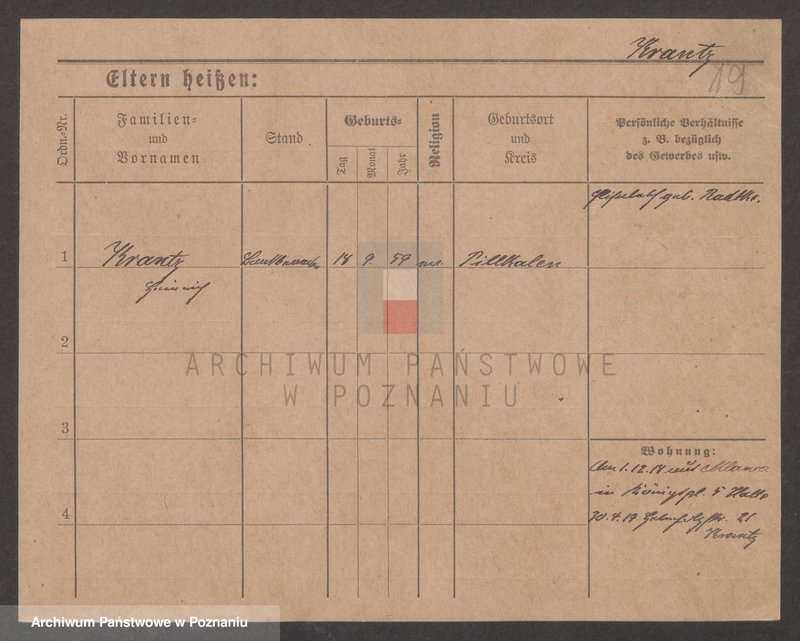 Krantz
19
Eltern heißen:
Ordn.-Nr.
Familien-
und
Vornamen
Stand
Geburts-
Tag
Monat
Jahr
Religion
Geburtsort
und
Kreis
Persönliche Verhältnisse
z. B. bezüglich
des Gewerbes usw.
geb. Radtke.
1 Krantz 18 9. 59 Pillkalen
Heinrich
2
ARCHIWUM PAŃSTWOWE
W POZNANIU
3
Wohnung:
1.12.18 aus Mlawa
in Königspl. 5
4
30.4.19 21
Krantz
Archiwum Państwowe w Poznaniu